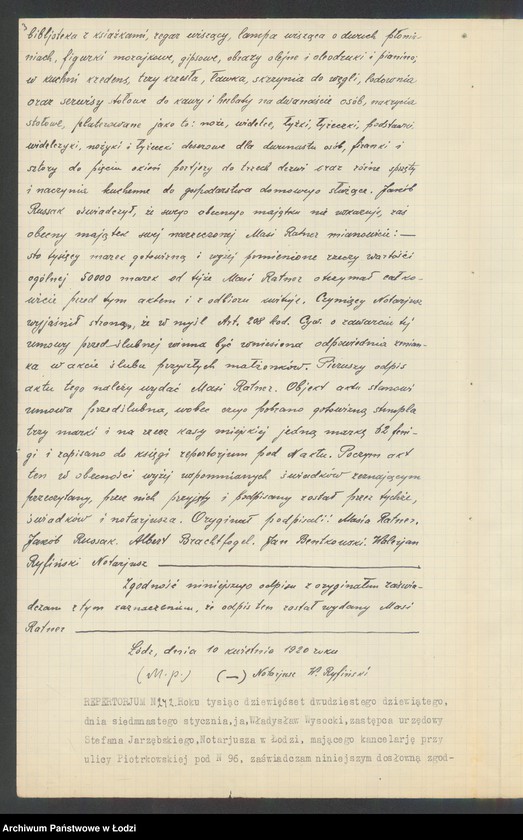 3
bibljoteka z książkami, zegar wiszący, lampa wisząca o dwuch płomie-
niach, figurki mozajkowe, gipsowe, obrazy olejne i oleodruki i pianino;
w kuchni kredens, trzy krzesła, ławka, skrzynia do węgli, lodownia
oraz serwisy stołowe do kawy i herbaty na dwanaście osób, nakrycia
stołowe, platerowane jako to: noże, widelce, łyżki, łyżeczki, podstawki
widelczyki, nożyki i łyżeczki deserowe dla dwunastu osób, firanki i
sztory do pięciu okien portjery do trzech drzwi oraz różne sprzęty
i naczynia kuchenne do gospodarstwa domowego służące. Jakób
Russak oświadczył, że swego obecnego majątku nie wskazuje, zaś
obecny majątek swej narzeczonej Masi Ratner mianowicie: —
sto tysięcy marek gotowizną i wyżej pomienione rzeczy wartości
ogólnej 50000 marek od tejże Masi Ratner otrzymał całko-
wicie przed tym aktem i z odbioru kwituje. Czyniący Notarjusz
wyjaśnił stronom, że w myśl Art. 208 kod. Cyw. o zawarciu tej
umowy przedślubnej winna być wniesiona odpowiednia wzmian-
ka w akcie ślubu przyszłych małżonków. Pierwszy odpis
aktu tego należy wydać Masi Ratner. Objekt aktu stanowi
umowa przedślubna, wobec czego pobrano gotowizną stempla
trzy marki i na rzecz kasy miejskiej jedną markę 62 feni-
gi i zapisano do księgi repertorjum pod N aktu. Poczym akt
ten w obecności wyżej wspomnianych świadków zeznającym
przeczytany, przez nich przyjęty i podpisany został przez tychże,
świadków i notarjusza. Oryginał podpisali: Masia Ratner.
Jakób Russak. Albert Brachtfogel. Jan Bentkowski. Walerjan
Ryfiński Notarjusz
Zgodność niniejszego odpisu z oryginałem zaświa-
dczam z tym zaznaczeniem, że odpis ten został wydany Masi
Ratner
Łódź, dnia 10 kwietnia 1920 roku
(M.p.) (—) Notarjusz W. Ryfiński
REPERTORJUM N Roku tysiąc dziewięćset dwudziestego dziewiątego,
dnia siedmnastego stycznia, ja, Władysław Wysocki, zastępca urzędowy
Stefana Jarzębskiego, Notarjusza w Łodzi, mającego kancelarję przy
ulicy Piotrkowskiej pod N 96, zaświadczam niniejszym dosłowną zgod-
Archiwum Państwowe w Łodzi